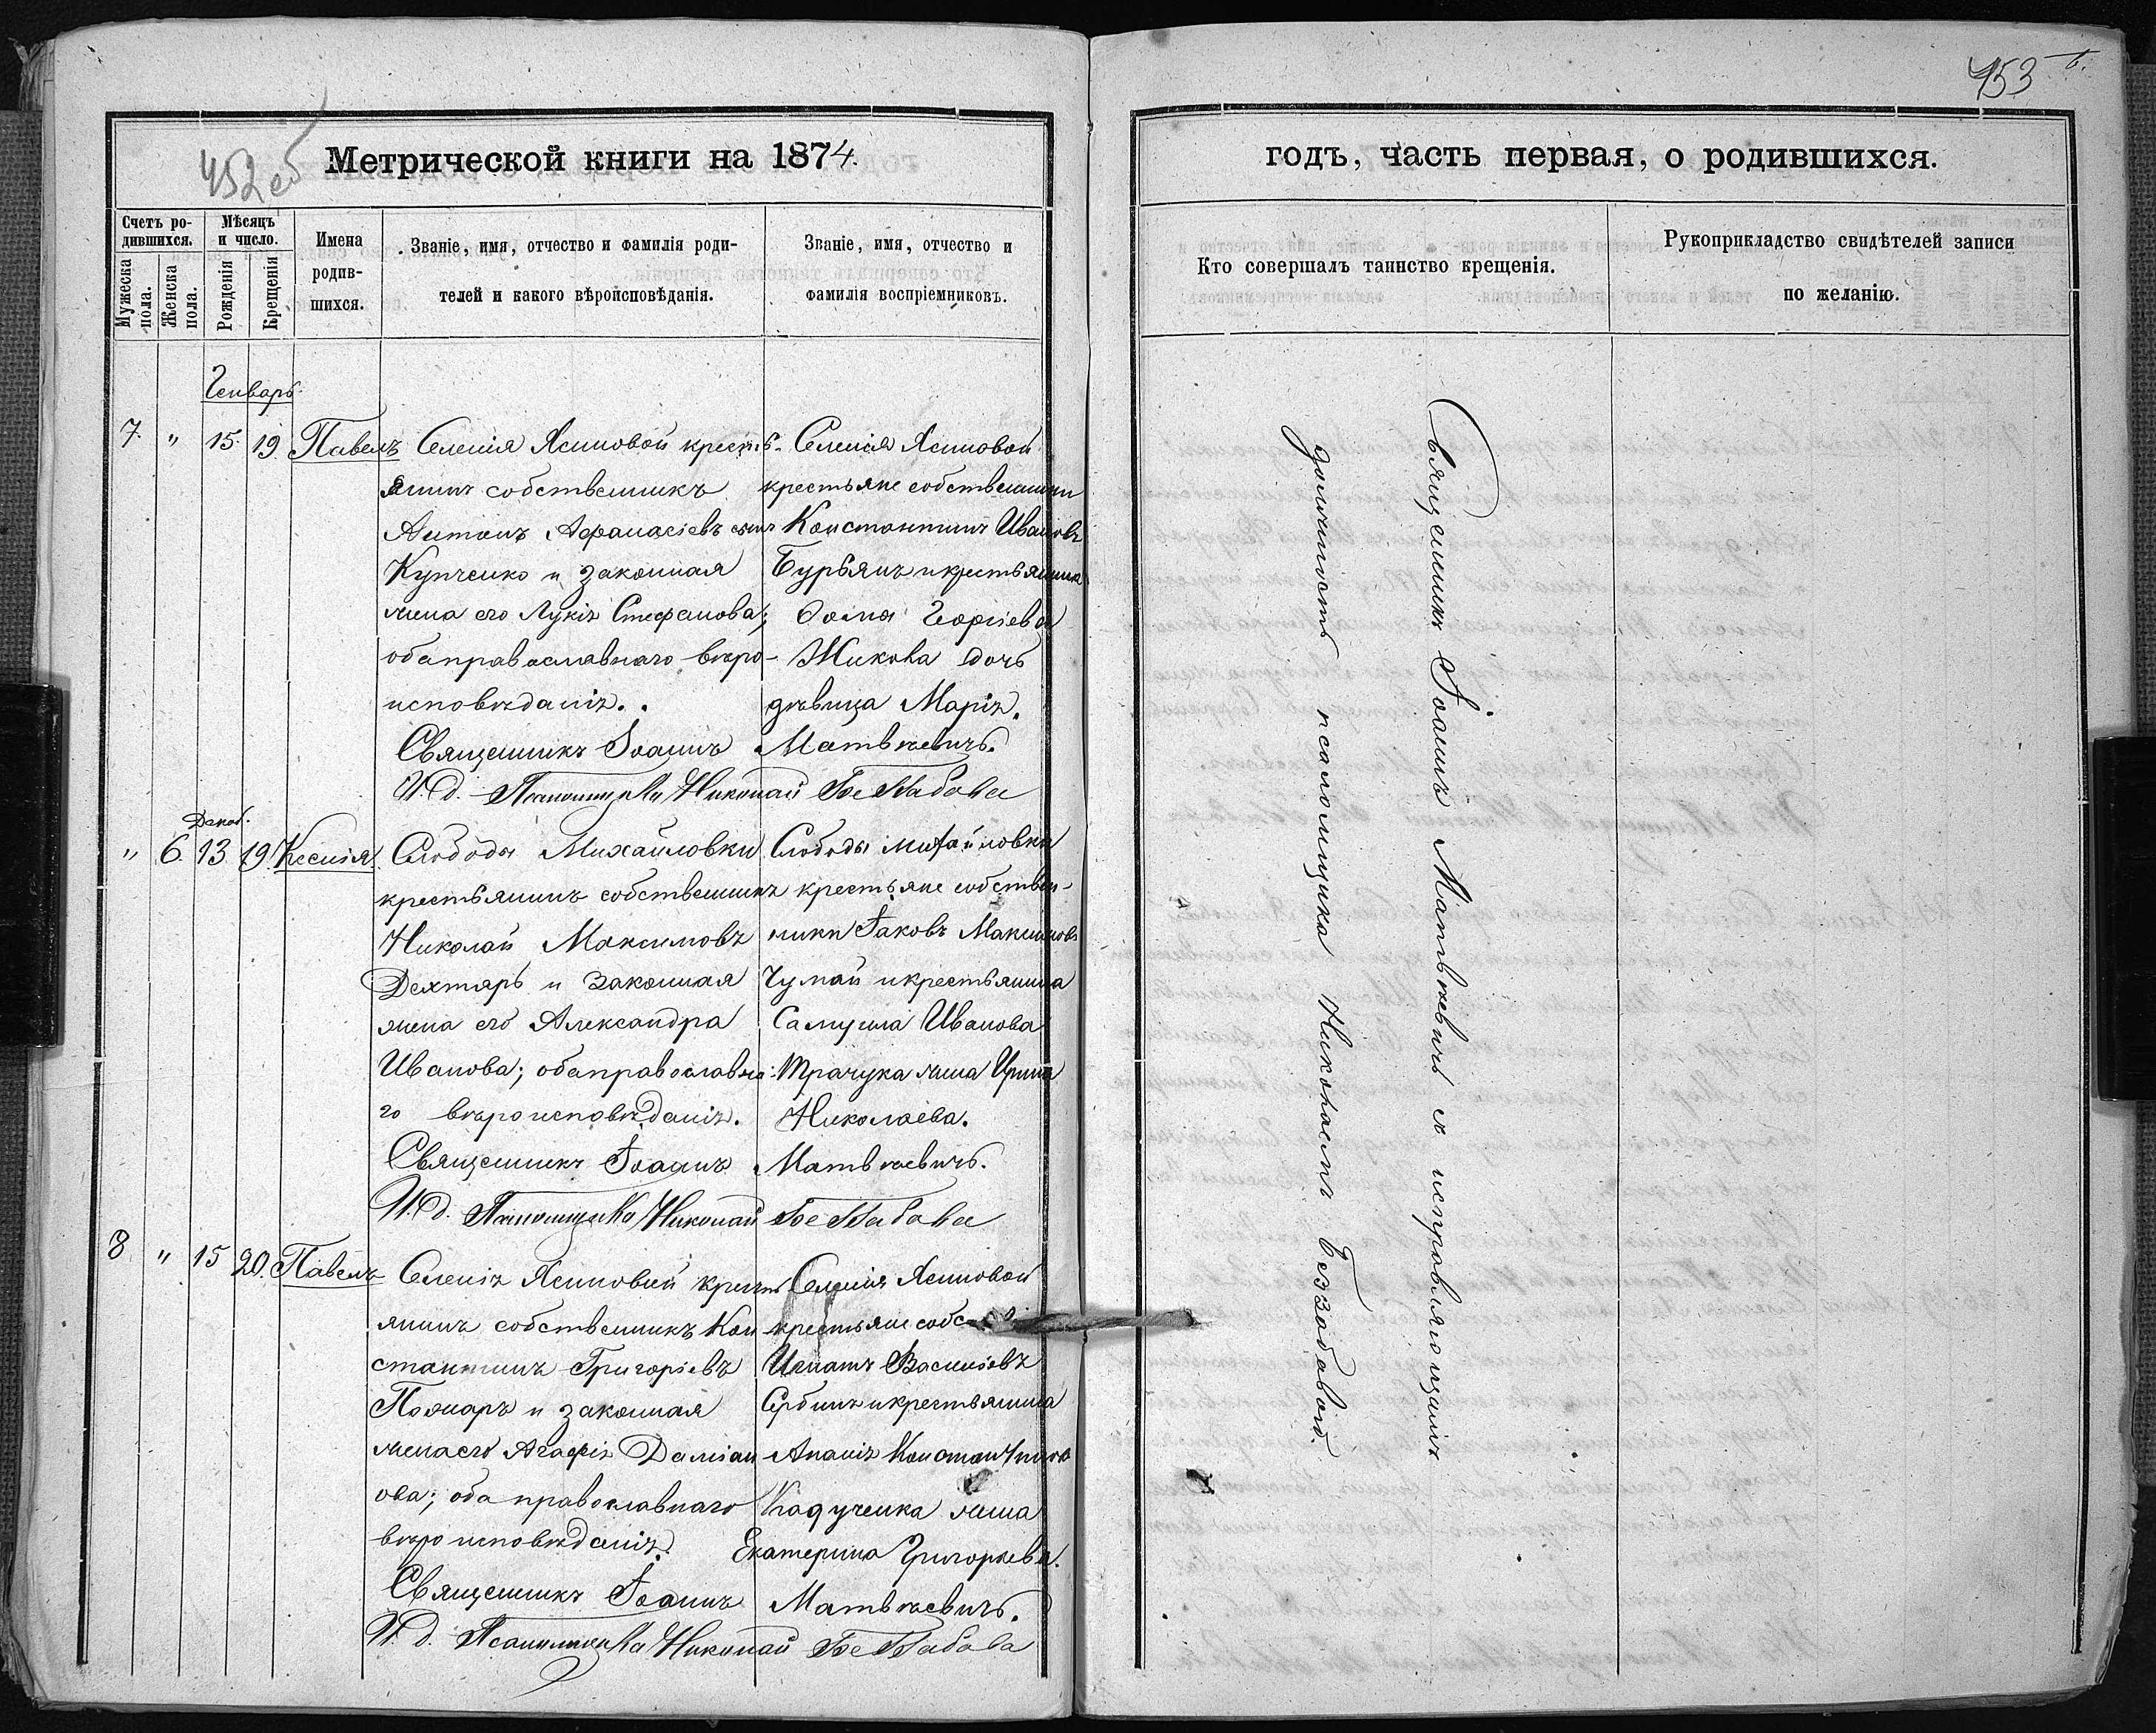 452об
Метрической книги на 1874.
Счетъ ро-
дившихся.
Мужеска
пола.
Женска
пола.
Мѣсяцъ
и число.
Рожденія
Крещенія
Имена
родив-
шихся.
Званіе, имя, отчество и фамилія роди-
телей и какого вѣроисповѣданія.
Званіе, имя, отчество и
фамилія воспріемниковъ.
Генварь.
7. " 15. 19. Павелъ
Селенія Ясиновой кресть-
янинъ собственникъ
Антонъ Афанасіевъ сынъ
Купченко и законная
жена его Лукія Стефанова;
оба православнаго вѣро-
исповѣданія.
Селенія Ясиновой
крестьяне собственники
Константинъ Ивановъ
Бурьянъ и крестьянина
Фомы Георгіева
Жикова дочь
дѣвица Марія.
Священникъ Іоаннъ Матвѣевичъ.
И. д. Псаломщика Николай Беззабава
Декаб.
" 6. 13 19. Ксенія.
Слободы Михайловки
крестьянинъ собственникъ
Николай Максимовъ
Дехтярь и законная
жена его Александра
Иванова; оба православна-
го вѣроисповѣданія.
Слободы Михайловки
крестьяне собствен-
ники Іаковъ Максимовъ
Чумай и крестьянина
Самуила Иванова
Трачука жена Ирина
Николаева.
Священникъ Іоаннъ Матвѣевичъ.
И. д. Псаломщика Николай Беззабава
8 " 15 20. Павелъ
Селенія Ясиновой кресть
янинъ собственникъ Кон
стантинъ Григоріевъ
и законная
жена его Агафія Даміан
ова; оба православнаго
вѣроисповѣданія.
Селенія Ясиновой
крестьяне собс
Игнатъ Василіевъ
Сербинъ и крестьянина
Ананія Константинова
Кадученка жена
Екатерина Григорьева.
Священникъ Іоаннъ Матвѣевичъ.
И. д. Псаломщика Николай Беззабава
453
годъ, часть первая, о родившихся.
Кто совершалъ таинство крещенія.
Рукоприкладство свидѣтелей записи
по желанію.
Священникъ Іоаннъ Матвѣевичъ съ исправляющимъ
должность псаломщика Николаемъ Беззабавой.